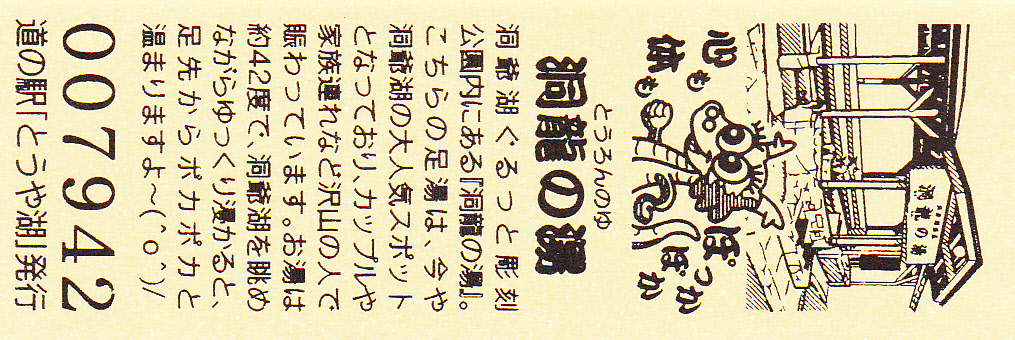 心も
体も
ぽっか
ぽか
洞龍の湯
とうろんのゆ
洞龍の湯
洞爺湖ぐるっと彫刻
公園内にある「洞龍の湯」。
こちらの足湯は、今や
洞爺湖の大人気スポット
となっており、カップルや
家族連れなど沢山の人で
賑わっています。お湯は
約42度で、洞爺湖を眺め
ながらゆっくり浸かると、
足先からポカポカと
温まりますよ～(^o^)/
007942
道の駅「とうや湖」発行